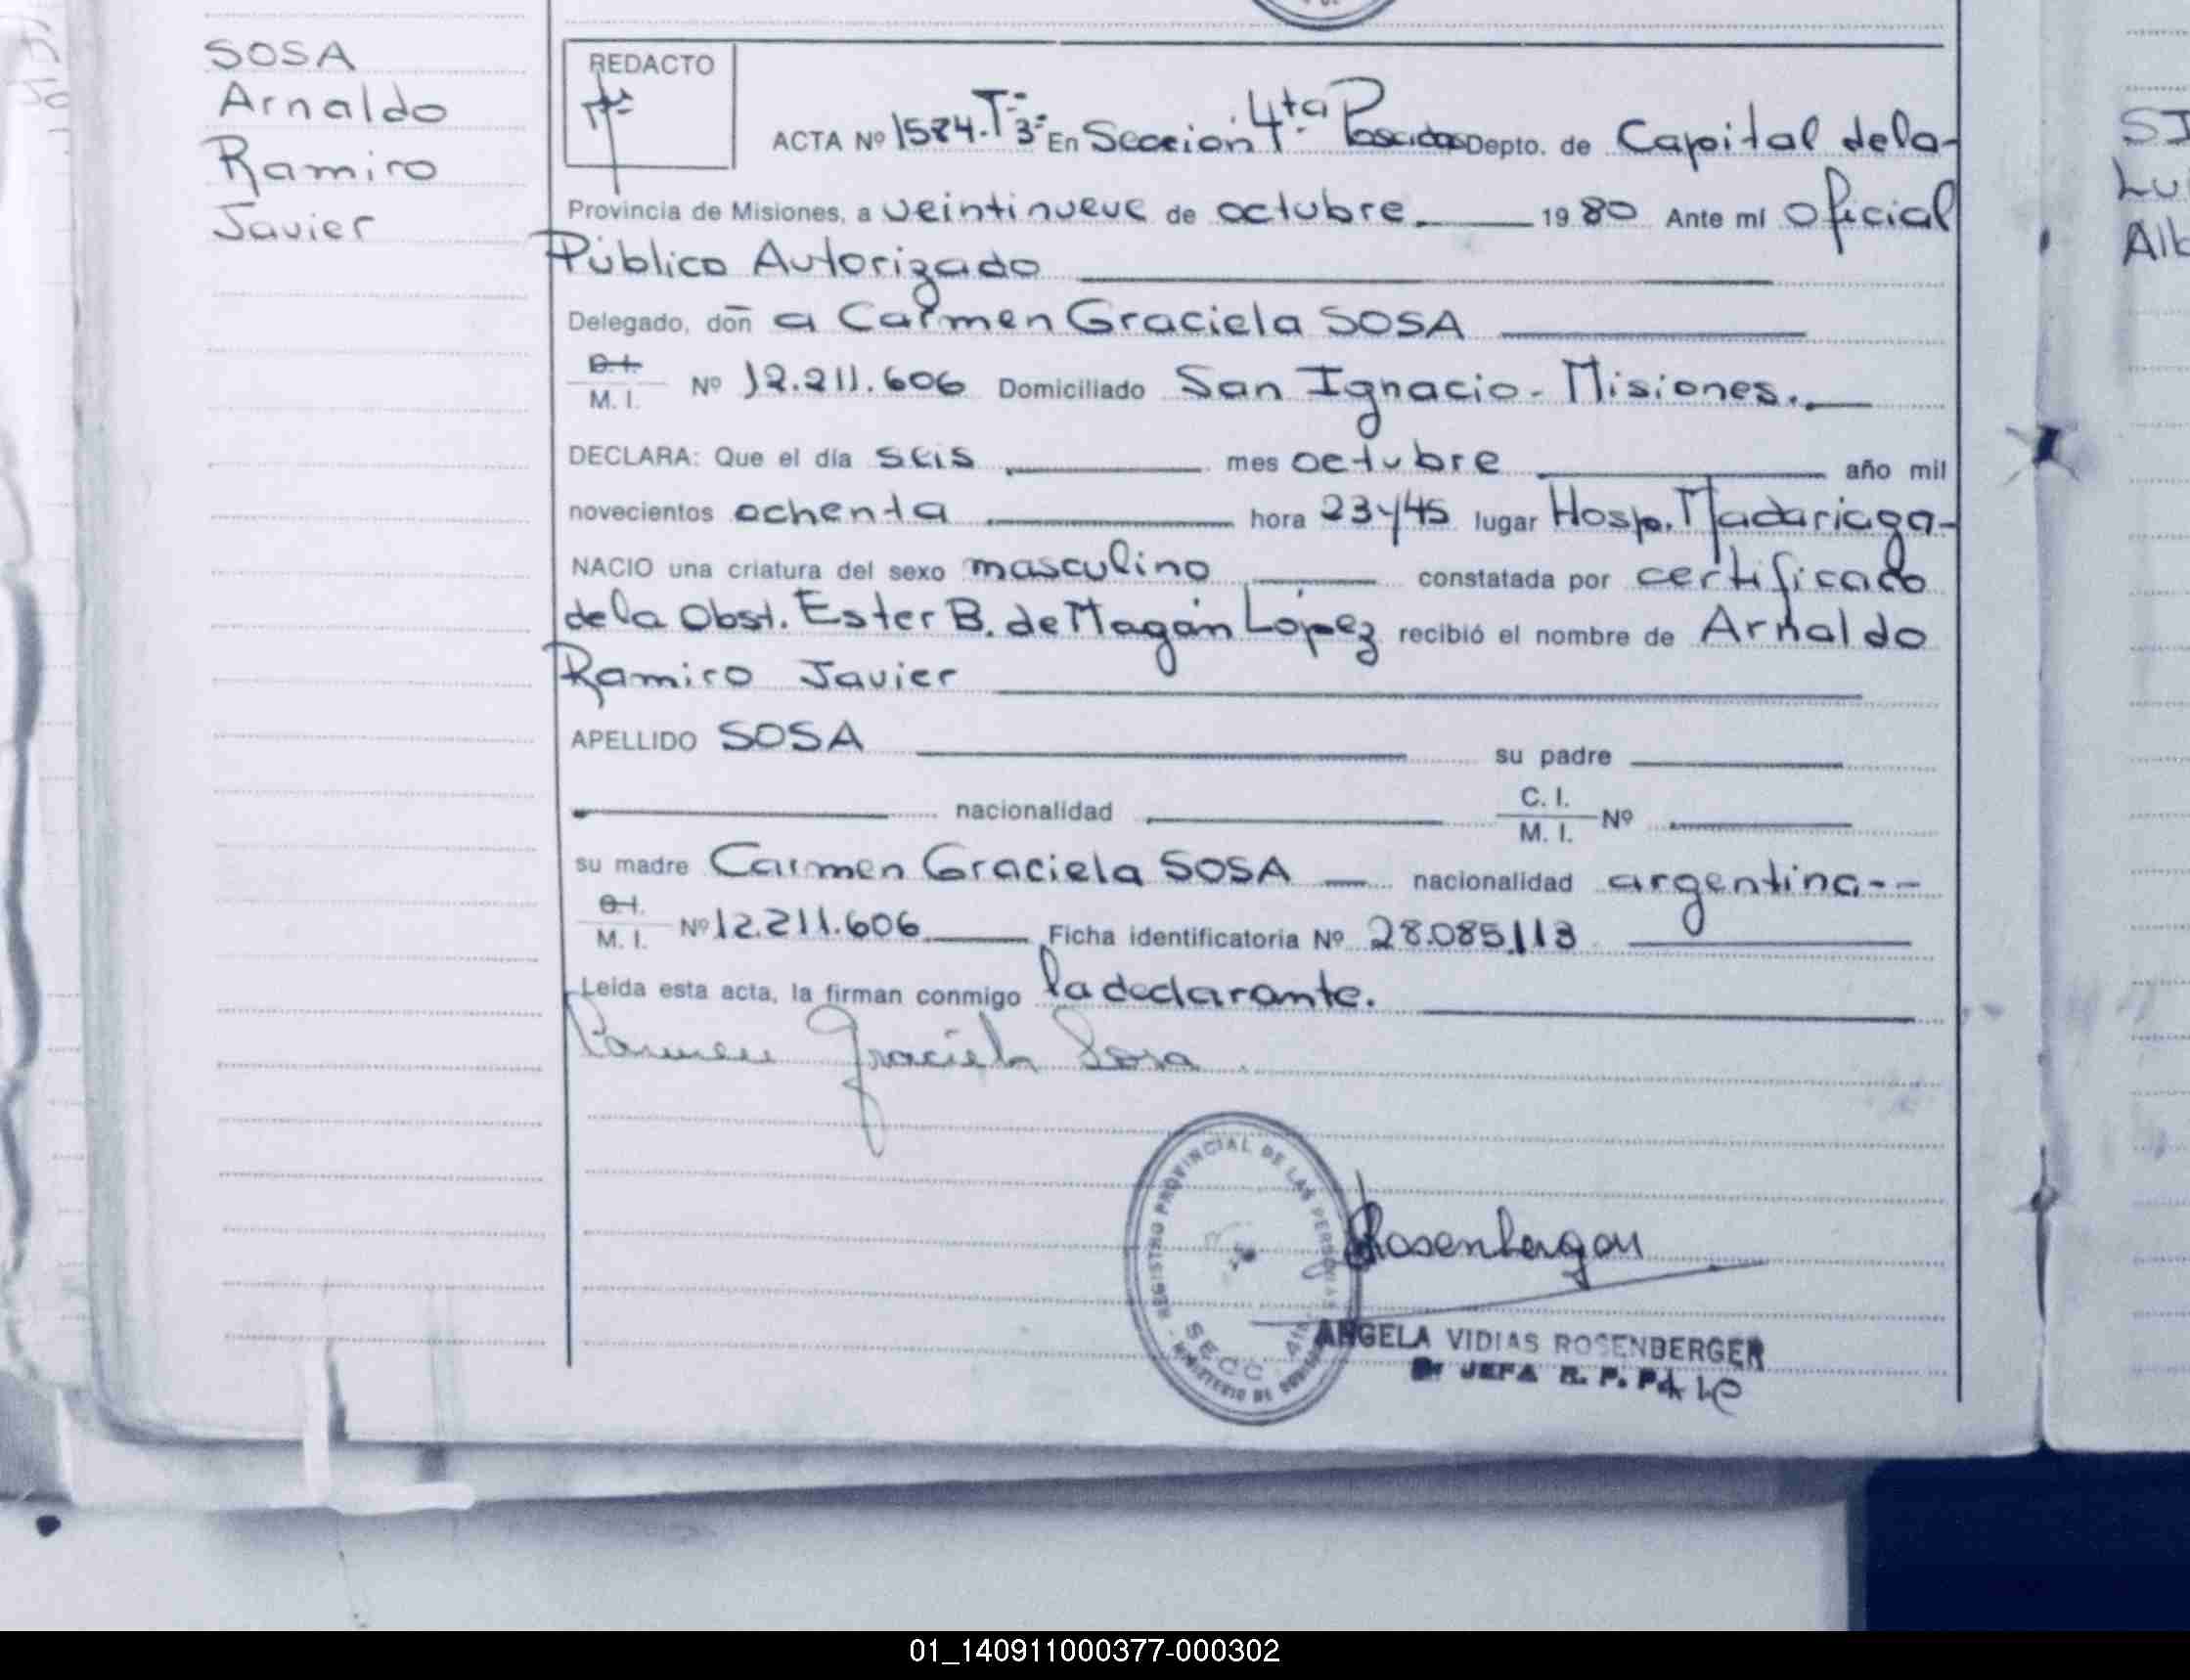 SOSA
Arnaldo
Ramiro
Javier
REDACTO
ACTA Nº 1584. Tº 3º En Sección 4ta Posadas Depto. de Capital dela-
Provincia de Misiones, a veintinueve de octubre. 1980 Ante mí Oficial
Público Autorizado
Delegado, doñ a Carmen Graciela SOSA
D.I. M. I. Nº 12.211.606 Domiciliado San Ignacio - Misiones.
DECLARA: Que el día seis mes octubre año mil
novecientos ochenta hora 23y45 lugar Hosp. Madariaga-
NACIO una criatura del sexo masculino constatada por certificado
de la Obst. Ester B. de Magán López recibió el nombre de Arnaldo
Ramiro Javier
APELLIDO SOSA su padre
nacionalidad C. I. M. I. Nº
su madre Carmen Graciela SOSA nacionalidad argentina--
M. I. Nº 12.211.606 Ficha identificatoria Nº 28.085.113
Leída esta acta, la firman conmigo la declarante.
Carmen Graciela Sosa
REGISTRO PROVINCIAL DE LAS PERSONAS
SECC. 4ta
MINISTERIO DE GOBIERNO
Rosenberger
ANGELA VIDIAS ROSENBERGER
JEFA R. P. P.
SI
Lu
Alb
01_140911000377-000302